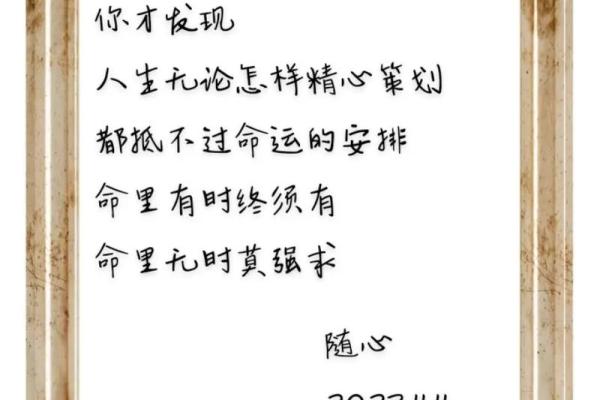 你才发现
人生无论怎样精心策划
都抵不过命运的安排
命里有时终须有
命里无时莫强求
随心